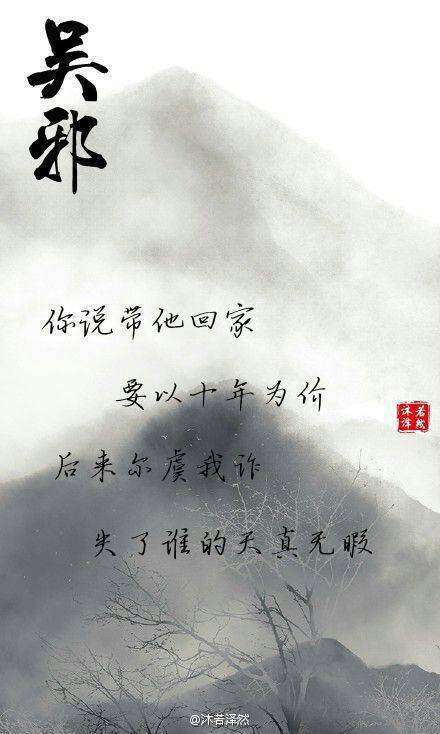 吴邪
你说带他回家
要以十年为价
后来尔虞我诈
失了谁的天真无暇
沐若泽然
@沐若泽然